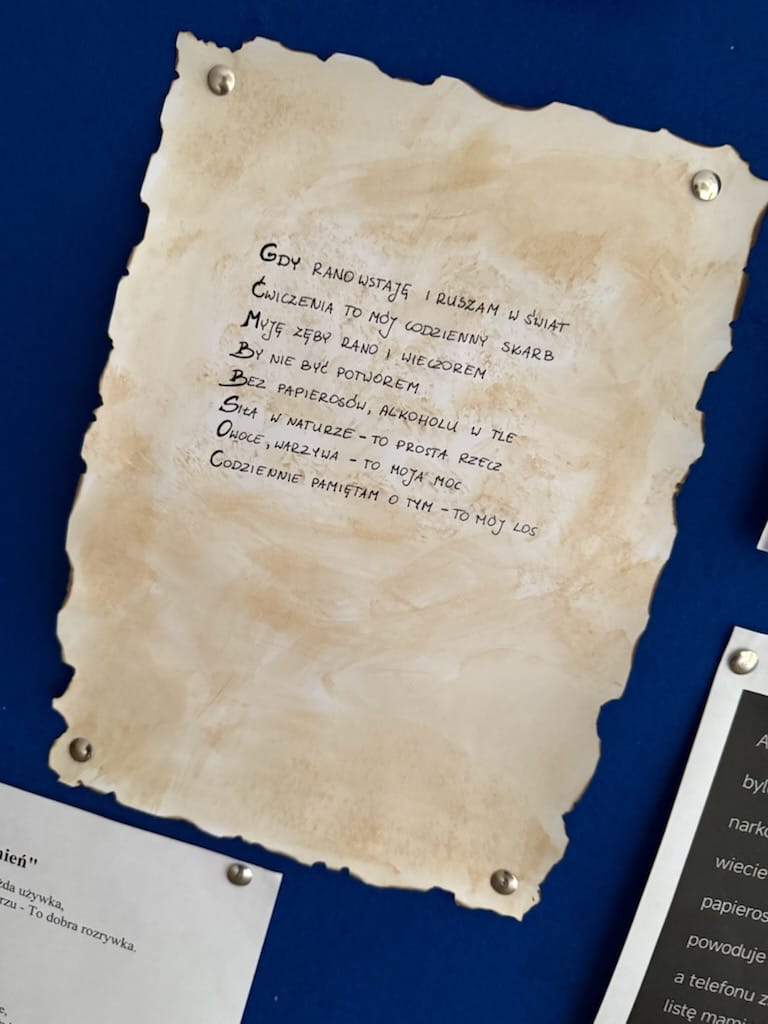 GDY RANO WSTAJĘ I RUSZAM W ŚWIAT
ĆWICZENIA TO MÓJ CODZIENNY SKARB
MYJĘ ZĘBY RANO I WIECZOREM
BY NIE BYĆ POTWOREM
BEZ PAPIEROSÓW, ALKOHOLU W TLE
SIŁA W NATURZE - TO PROSTA RZECZ
OWOCE, WARZYWA - TO MOJA MOC
CODZIENNIE PAMIĘTAM O TYM - TO MÓJ LOS
ień"
żda używka,
rzu - To dobra rozrywka.
A
było
narko
wiecie
papieros
powoduje
a telefonu z
listę mami